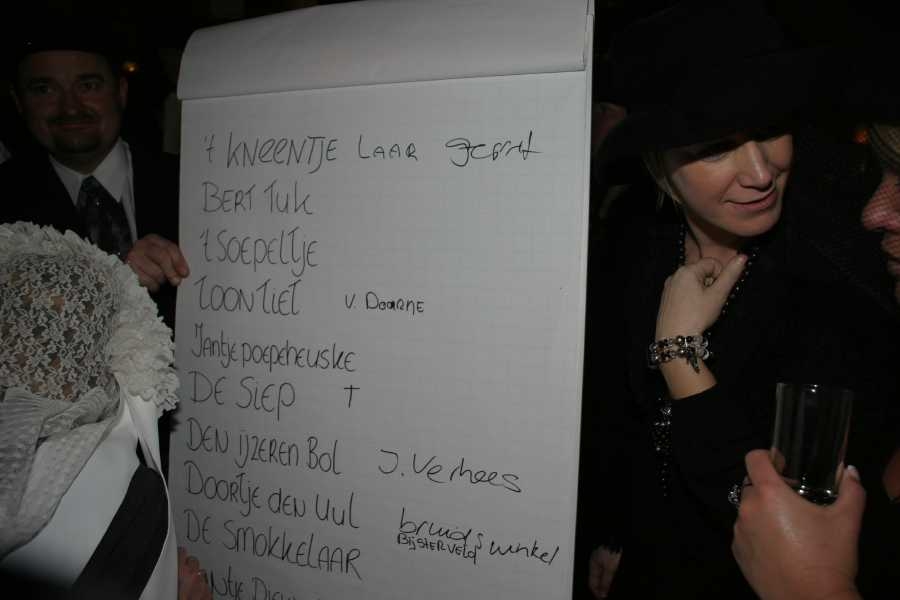 't KNEENTJE LAAR
BERT TUK
't SOEPELTJE
TOON TIET v. Doorne
Jantje poepeheuske
DE SIEP †
DEN IJZEREN BOL J. Verhees
Doortje den Uul bruidswinkel
DE SMOKKELAAR BIJSTERVELD